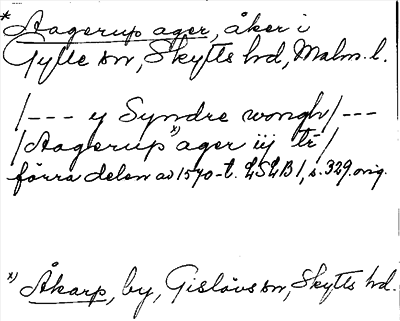 * Aagerup ager, åker i
Gylle sn, Skytts hd, Malm. l.
/--- y Syndre wongh/---
/Aagerup x) ager iij tr/
förra delen av 1570-t. LSLB 1, s. 329. orig.
x) Åkarp, by, Gislövs sn, Skytts hd.